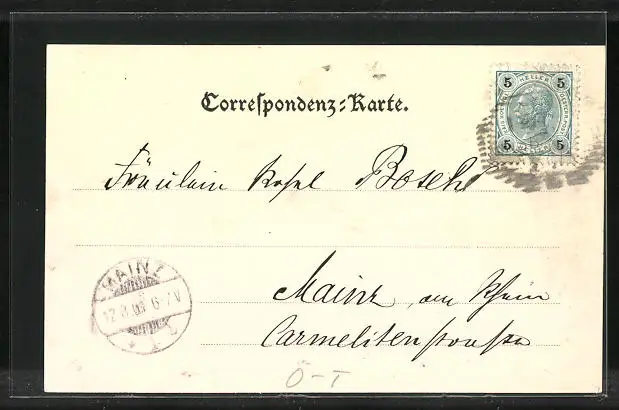 Correspondenz-Karte.
5 HELLER 5
5 5
Fräulein Rosel Bosch
MAINZ
6-7 V
Mainz am Rhein
Carmelitenstrasse
Ö-T